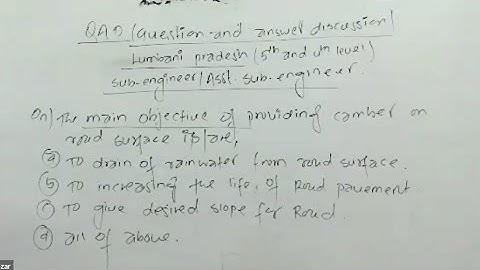 QAD (Question and answer discussion)
Lumbani pradesh (5th and 4th level)
sub-engineer/Asst. sub-engineer.
Qn) The main objective of providing camber on
road surface is/are,
(a) TO drain of rainwater from road surface.
(b) To increasing the life, of Road pavement
(c) To give desired slope for Road.
(d) all of above.
zar